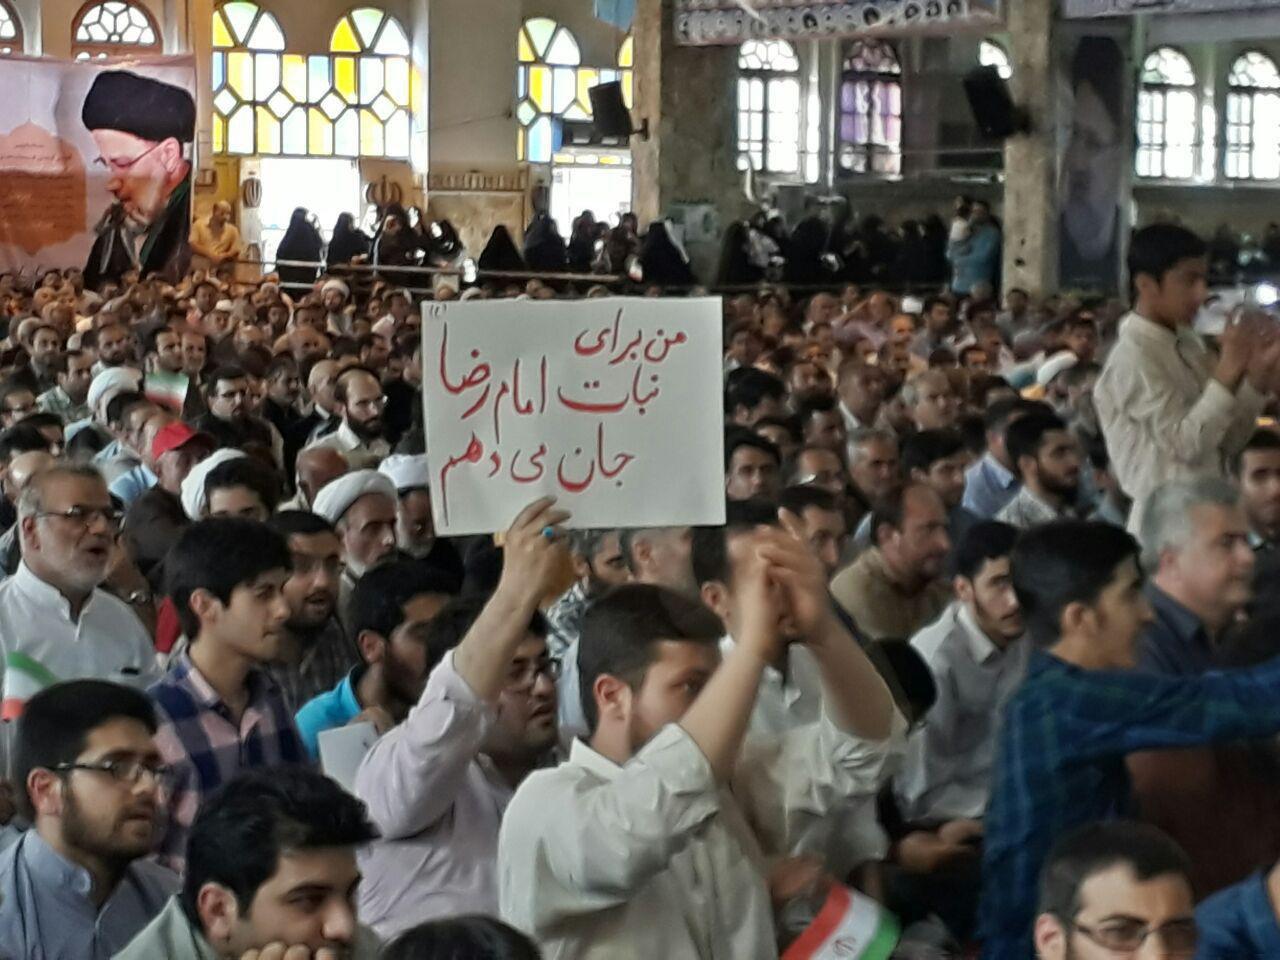 (ع)
من برای
نبات امام رضا
جان می دهم